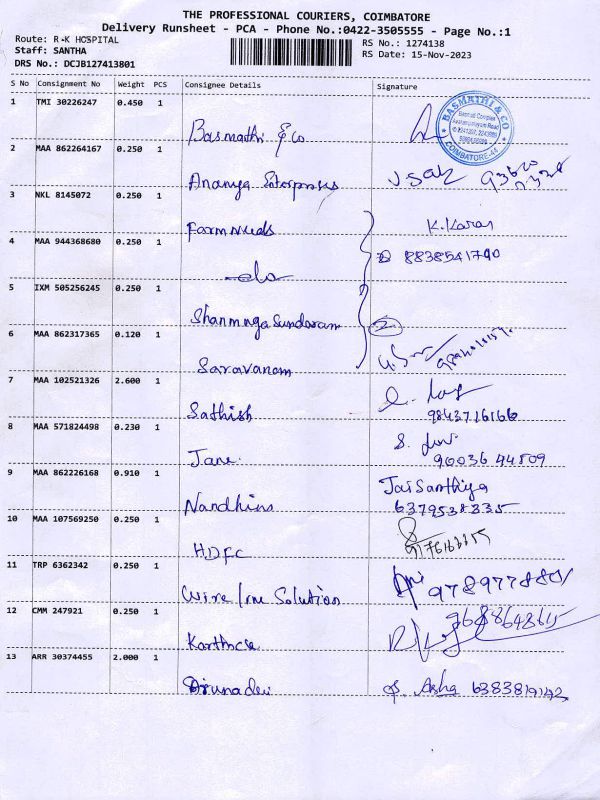 THE PROFESSIONAL COURIERS, COIMBATORE
Delivery Runsheet - PCA - Phone No.:0422-3505555 - Page No.:1
Route: R-K HOSPITAL
Staff: SANTHA
DRS No.: DCJB127413801
RS No.: 1274138
RS Date: 15-Nov-2023
S No Consignment No Weight PCS Consignee Details Signature
1 TMI 30226247 0.450 1 Basmathi & Co
BASMATHI & CO
COIMBATORE-44
2 MAA 862264167 0.250 1 Ananya Enterprises
3 NKL 8145072 0.250 1 Farm needs K. Karan
4 MAA 944368680 0.250 1 -do- 8838541790
5 IXM 505256245 0.250 1 Shanmuga Sundaram 2
6 MAA 862317365 0.120 1 Saravanam
7 MAA 102521326 2.600 1 Sathish
9843716166
8 MAA 571824498 0.230 1 Jane
90036 44509
9 MAA 862226168 0.910 1 Nandhini Jai Santhiya
6379538335
10 MAA 107569250 0.250 1 HDFC
11 TRP 6362342 0.250 1 Wire line Solution
12 CMM 247921 0.250 1 Karthick
9688648615
13 ARR 30374455 2.000 1 Arunadevi Asha 6383819142